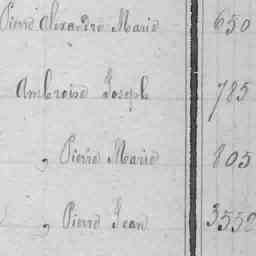 Pierre Alexandre Marie 650
Ambroise Joseph 785
„ Pierre Marie 805
„ Pierre Jean 3552